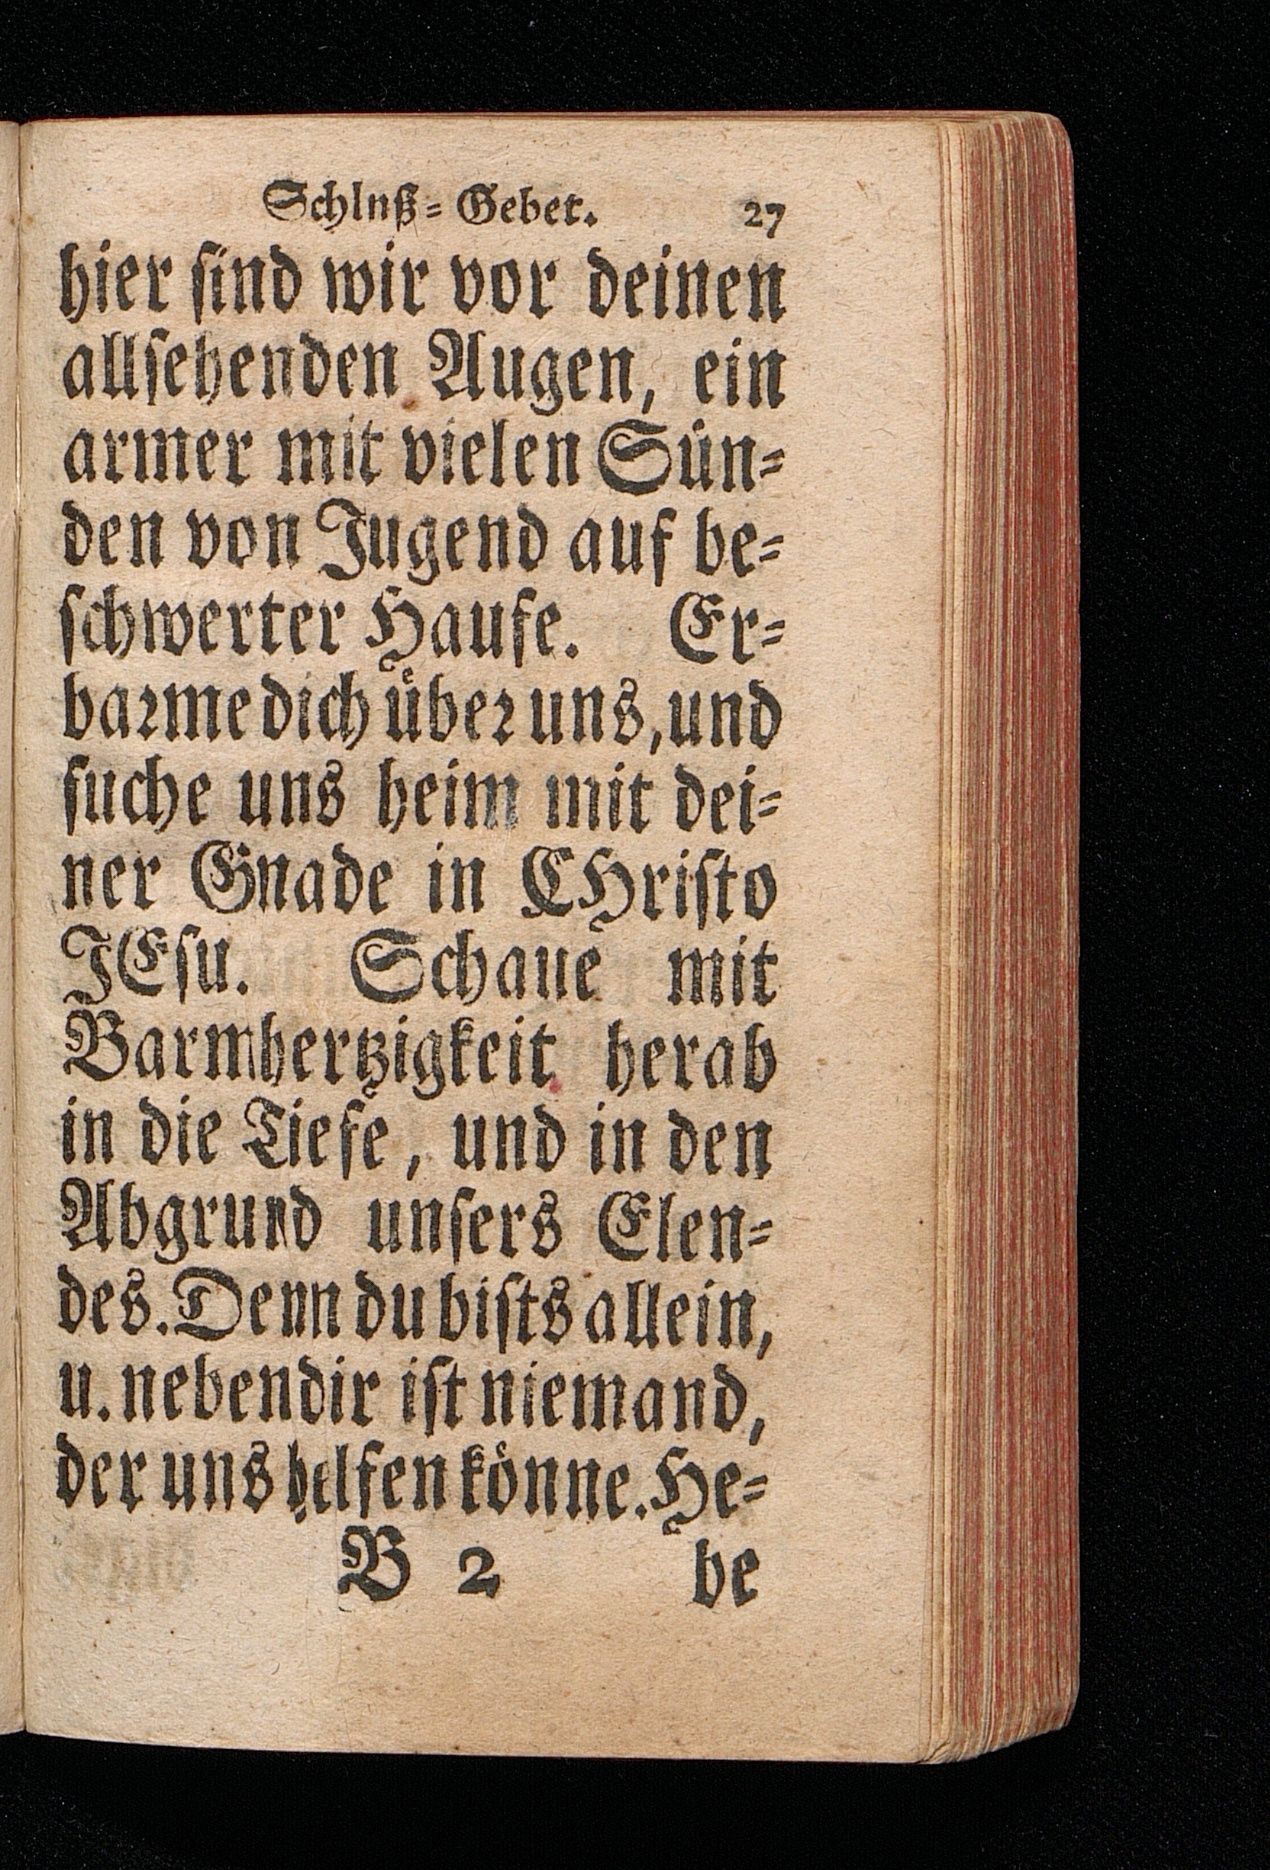 Schlnß-Gebet. 27
hier sind wir vor deinen
allsehenden Augen, ein
armer mit vielen Sün-
den von Jugend auf be-
schwerter Haufe. Er-
barme dich über uns, und
suche uns heim mit dei-
ner Gnade in CHristo
JEsu. Schaue mit
Barmhertzigkeit herab
in die Tiefe, und in den
Abgrund unsers Elen-
des. Denn du bists allein,
u. neben dir ist niemand,
der uns helfen könne. He-
B 2 be